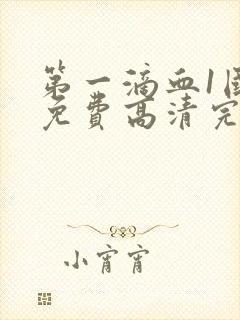 第一滴血1国
免费高清完
小宵宵